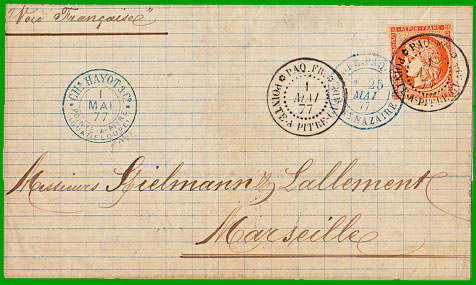 "Voie Française"
CH. HAYOT & Cº
1
MAI
77
POINTE-A-PITRE
(GUADELOUPE)
PAQ. FR.
1
MAI
77
POINTE-A-PITRE
PAQ.
25
MAI
77
ST NAZAIRE
REPUB. FRANC.
PAQ. FR.
POINTE-A-PITRE
Messieurs Bielmann & Lallement
Marseille